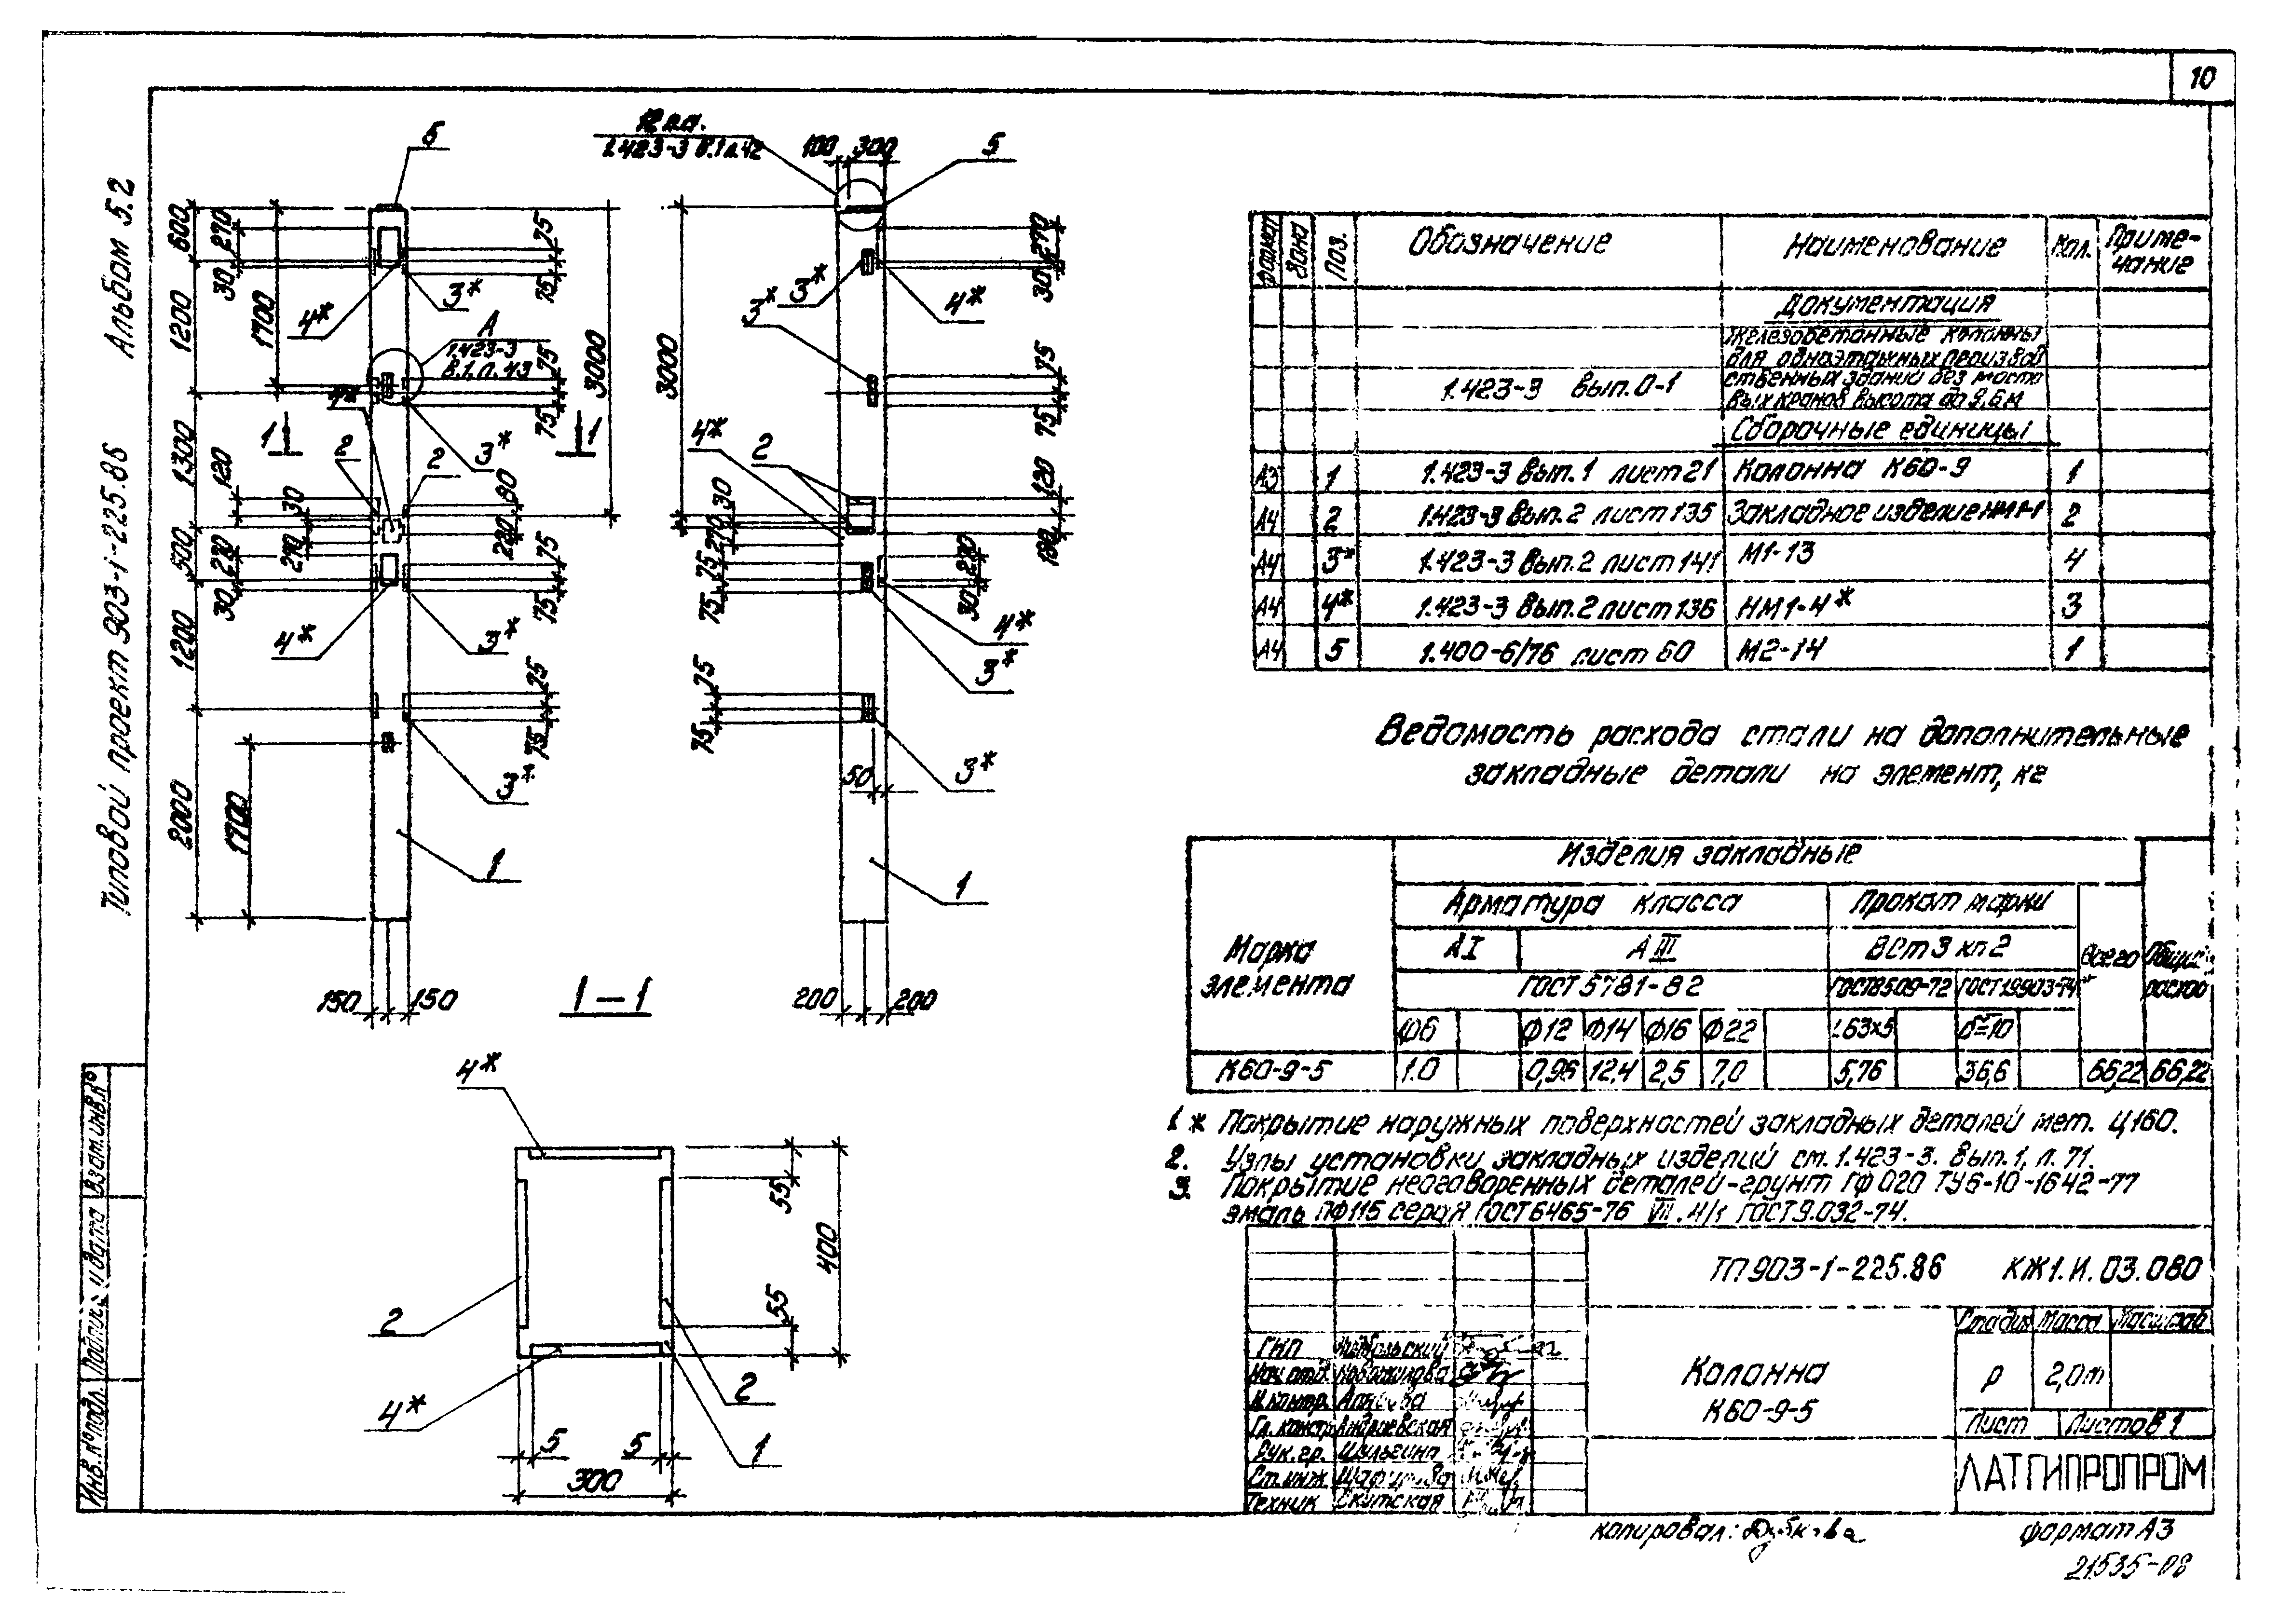 10
Альбом 5.2
Типовой проект 903-1-225.86
5
12 п.а.
1.423-3 В.1 л.42
100 300
5
600
270
30
1200
1700
75
75
3*
4*
А
1.423-3
В.1, л. 43
75
75
3000
1300
120
1
1
2
2
3*
30
80
220
270
500
270
30
75
75
4*
3*
1200
75
75
3*
2000
1700
1
150 150
3000
270
30
3*
3*
4*
75
75
4*
2
120
180
30
270
75
75
270
30
4*
3*
75
75
50
3*
1
200 200
1-1
4*
55
400
55
2
4*
2
1
5 5
300
Формат
Зона
Поз.
Обозначение
Наименование
Кол.
Приме-
чание
Документация
Железобетонные колонны
для одноэтажных производ
1.423-3 вып.0-1
ственных зданий без мосто
вых кранов высота до 9,6м
Сборочные единицы
А3 1 1.423-3 вып.1 лист 21 Колонна К60-9 1
А4 2 1.423-3 вып.2 лист 135 Закладное изделие НМ1-1 2
А4 3* 1.423-3 вып.2 лист 141 М1-13 4
А4 4* 1.423-3 вып.2 лист 136 НМ1-4* 3
А4 5 1.400-6/76 лист 60 М2-14 1
Ведомость расхода стали на дополнительные
закладные детали на элемент, кг
Марка
элемента
Изделия закладные
Арматура класса
Прокат марки
АI
АIII
ВСт3 кп2
Всего
Общий
расход
ГОСТ 5781-82
ГОСТ8509-72
ГОСТ19903-74*
Ф6 Ф12 Ф14 Ф16 Ф22 L63x5 б=10
К60-9-5 1.0 0,96 12,4 2,5 7,0 5,76 36,6 66,22 66,22
1 * Покрытие наружных поверхностей закладных деталей мет. Ц160.
2. Узлы установки закладных изделий см. 1.423-3. вып.1, л. 71.
3. Покрытие неоговоренных деталей-грунт ГФ 020 ТУ6-10-1642-77
эмаль ПФ115 серая ГОСТ6465-76 VII. 4/1 ГОСТ 9.032-74.
ТП 903-1-225.86 КЖ1.И.03.080
ГИП
Нач.отд. Новожилова
Н.контр.
Гл.констр. Андреевская
Рук.гр. Шульгина
Ст.инж.
Техник Скутская
Колонна
К60-9-5
Стадия Масса Масштаб
Р 2,0т
Лист Листов 1
ЛАТГИПРОПРОМ
Взам.инв.№
Подпись и дата
Инв.№подл.
копировал:
формат А3
21535-08